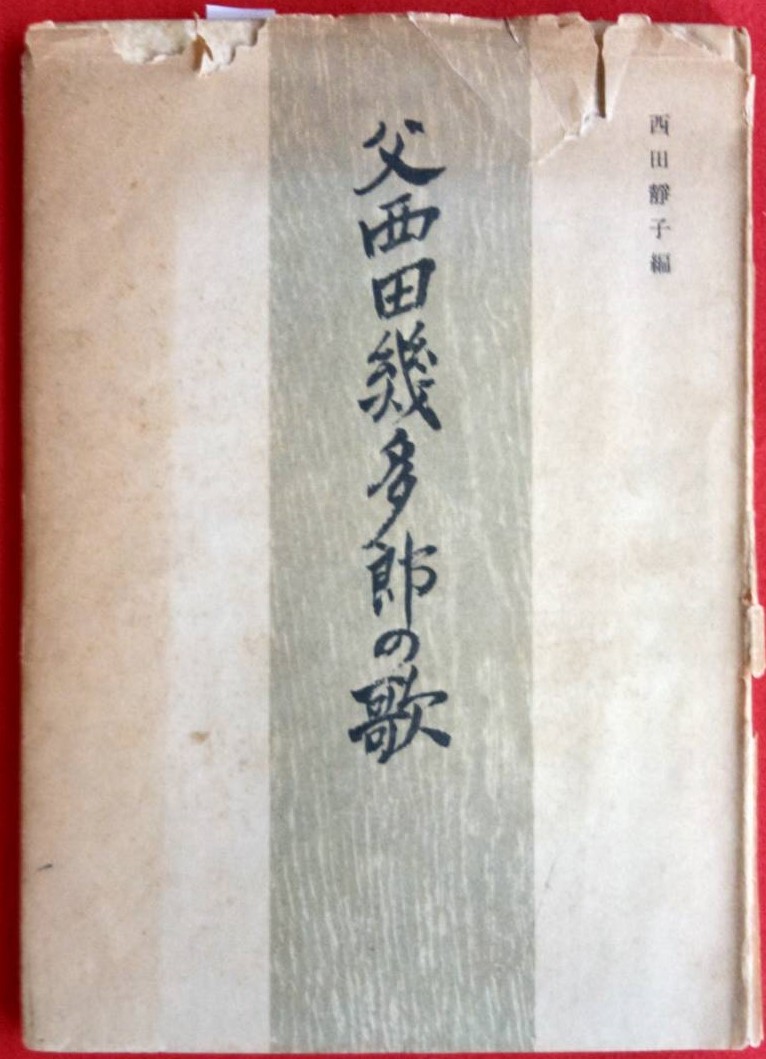 西田靜子編
父西田幾多郎の歌